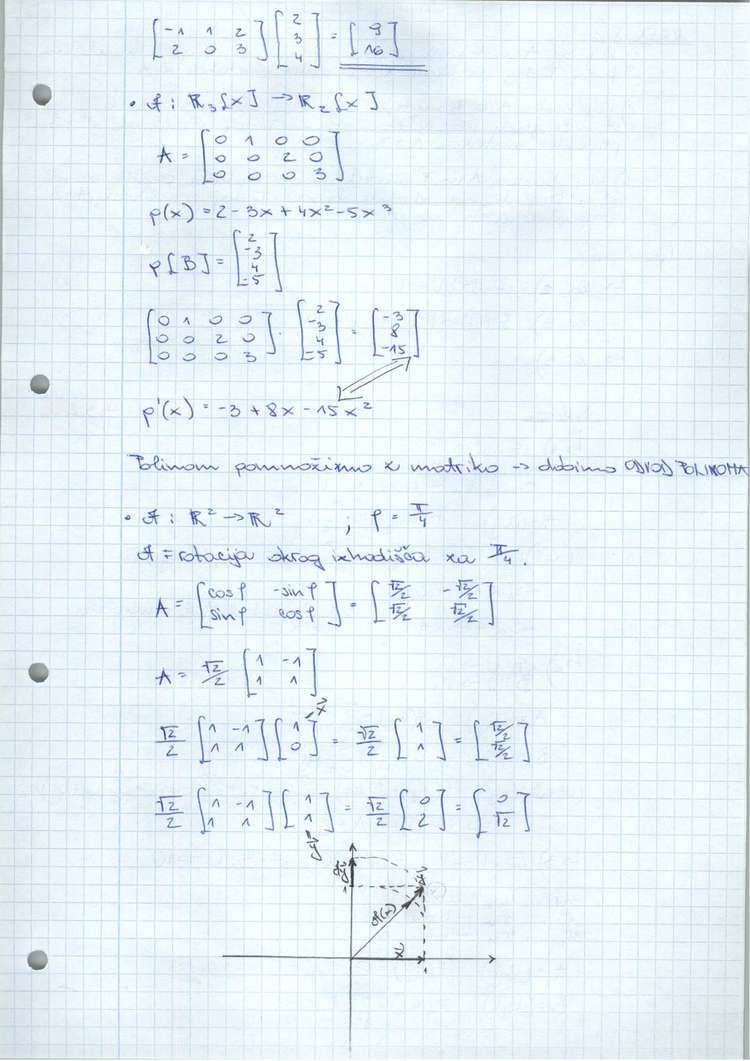 [-1 1 2; 2 0 3] [2; 3; 4] = [9; 16]
• A: ℝ₃[x] → ℝ₂[x]
A = [0 1 0 0; 0 0 2 0; 0 0 0 3]
p(x) = 2 - 3x + 4x² - 5x³
p[B] = [2; -3; 4; -5]
[0 1 0 0; 0 0 2 0; 0 0 0 3] · [2; -3; 4; -5] = [-3; 8; -15]
p'(x) = -3 + 8x - 15x²
Polinom pomnožimo z matriko → dobimo ODVOD POLINOMA
• A: ℝ² → ℝ² ; φ = π/4
A = rotacija okrog izhodišča za π/4.
A = [cosφ -sinφ; sinφ cosφ] = [√2/2 -√2/2; √2/2 √2/2]
A = √2/2 [1 -1; 1 1]
x⃗
√2/2 [1 -1; 1 1] [1; 0] = √2/2 [1; 1] = [√2/2; √2/2]
√2/2 [1 -1; 1 1] [1; 1] = √2/2 [0; 2] = [0; √2]
y⃗
y⃗
1
A(x)
x⃗
1